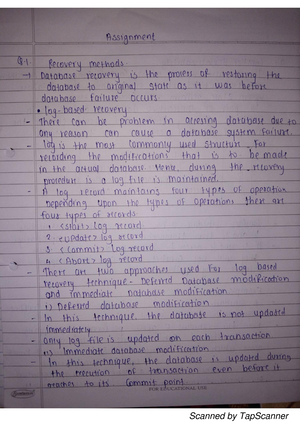 Assignment
Q.1 Recovery methods.
→ Database recovery is the process of restoring the
database to original state as it was before
database failure occurs
• Log-based recovery
- There can be problem in accessing database due to
any reason can cause a database system failure.
- Log is the most commonly used structure for
recording the modifications that is to be made
in the actual database. Hence, during the recovery
procedure is a log file is maintained.
- A log record maintains four types of operation
Depending upon the types of operations there are
four types of records
1 <Start> Log record
2 <Update> Log record
3 <Commit> Log record
4 <Abort> Log record
- There are two approaches used for log based
recovery technique - Deferred Database modification
and Immediate Database modification
i) Deferred database modification
- In this technique, the database is not updated
immediately
- Only log file is updated on each transaction
ii) Immediate database modification
- In this technique, the database is updated during
the execution of transaction even before it
reaches to its commit point.
FOR EDUCATIONAL USE
Scanned by TapScanner